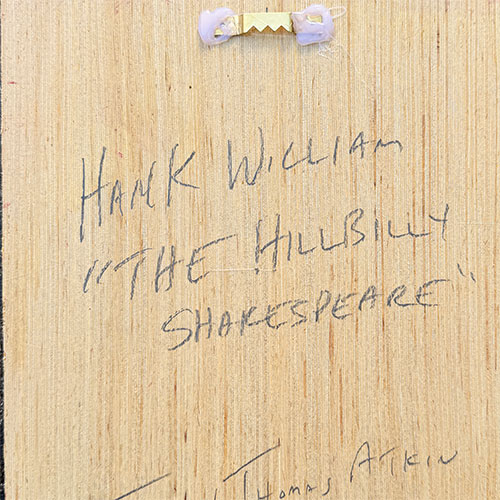 HANK WILLIAM
"THE HILLBILLY
SHAKESPEARE"
THOMAS ATKIN